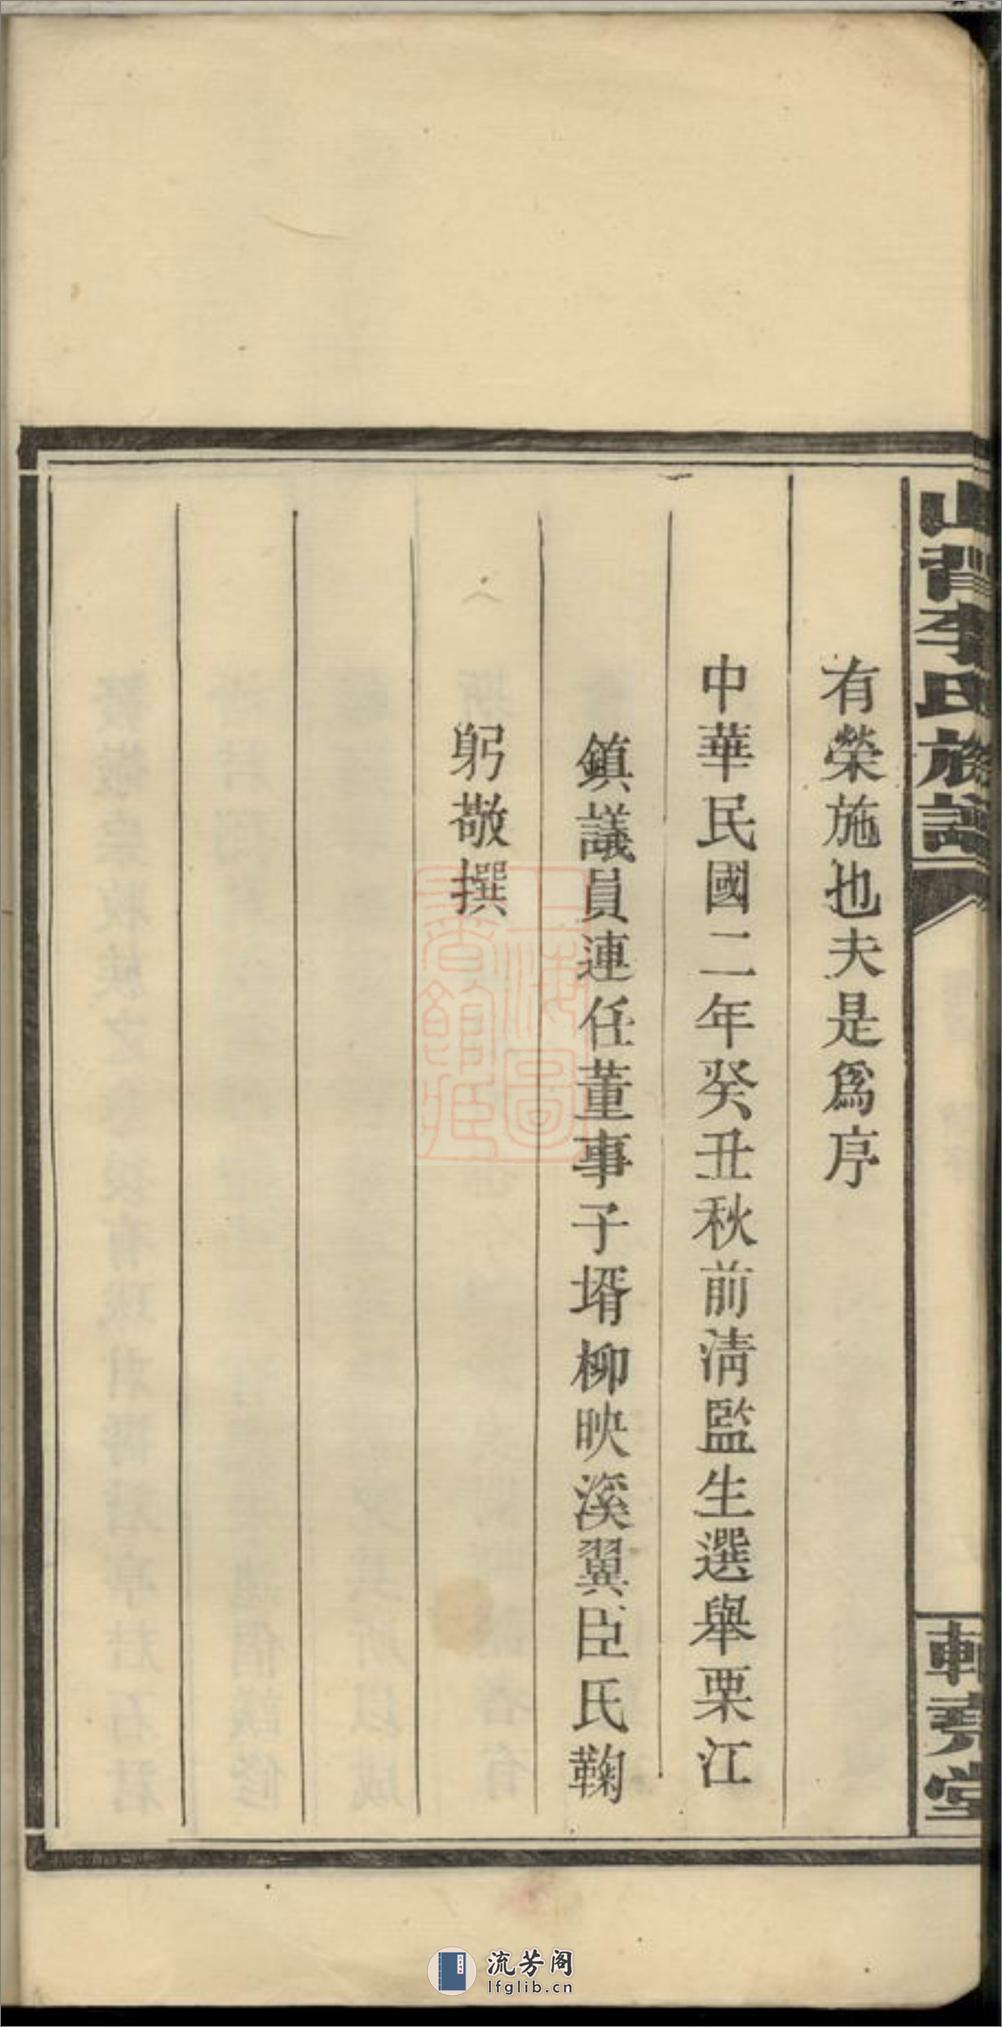 山背李氏族譜
軒彝堂
有榮施也夫是爲序
中華民國二年癸丑秋前淸監生選舉栗江
鎮議員連任董事子壻柳映溪翼臣氏鞠
躬敬撰
上海圖書館藏
流芳阁
lfglib.cn